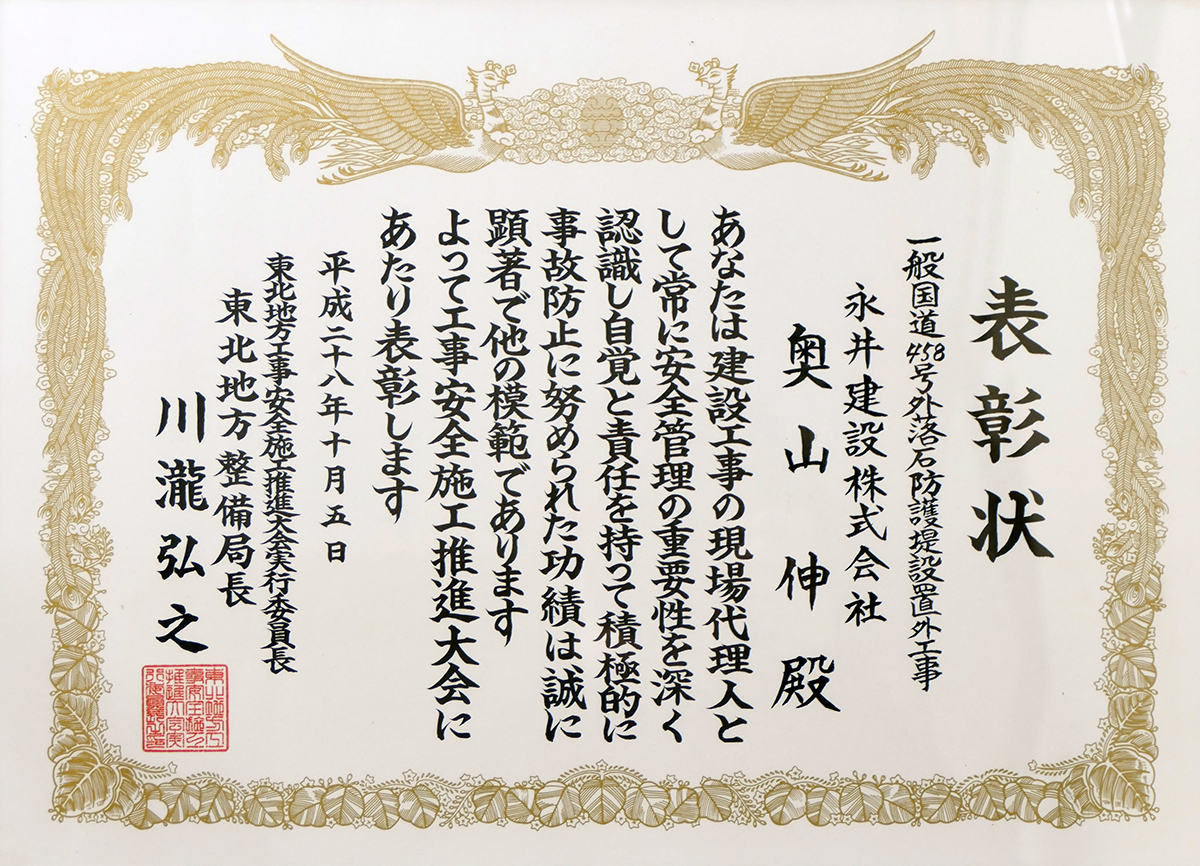 表彰状
一般国道458号外落石防護堤設置外工事
永井建設株式会社
奥山伸殿
あなたは建設工事の現場代理人と
して常に安全管理の重要性を深く
認識し自覚と責任を持って積極的に
事故防止に努められた功績は誠に
顕著で他の模範であります
よって工事安全施工推進大会に
あたり表彰します
平成二十八年十月五日
東北地方工事安全施工推進大会実行委員長
東北地方整備局長
川瀧弘之